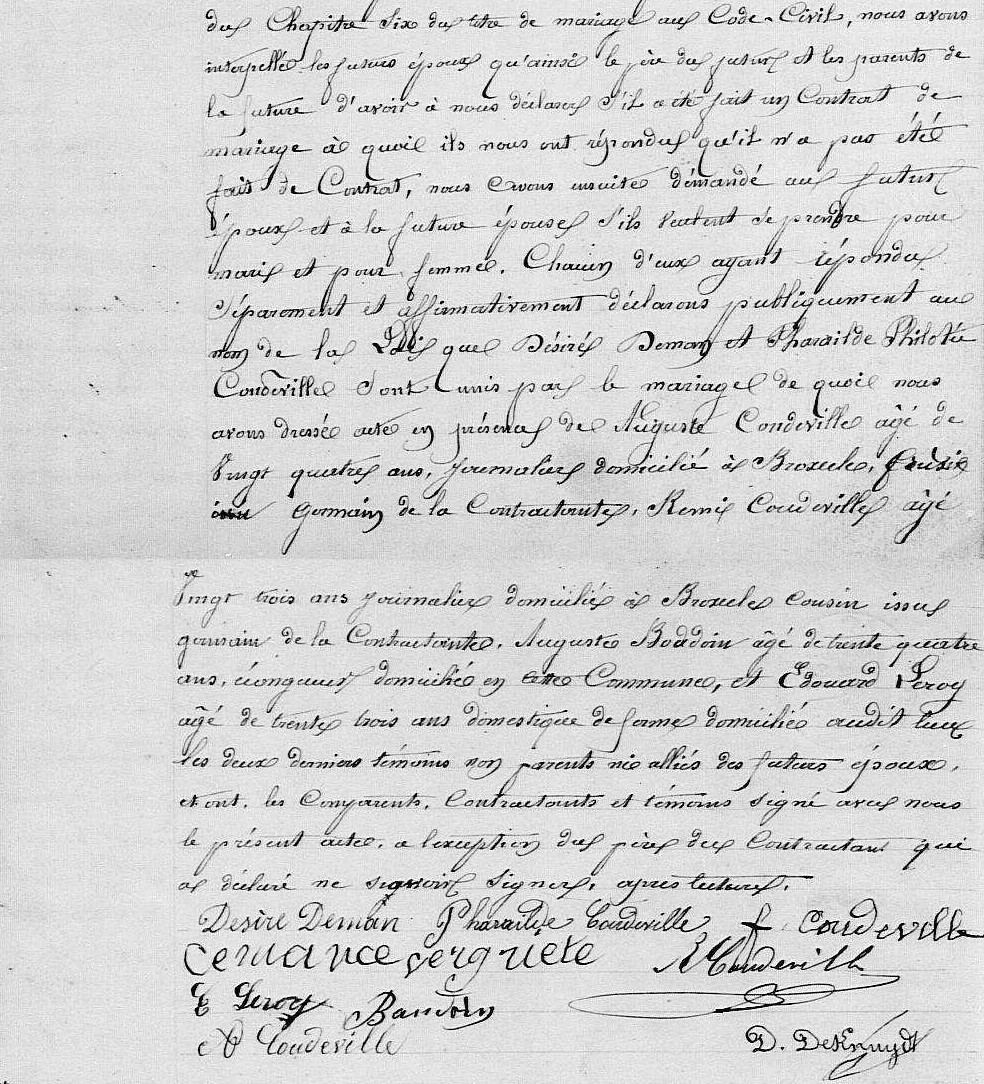 du Chapitre Six du titre de mariage au Code-Civil, nous avons
interpellé les futurs époux qu'ainsi le père du futur et les parents de
la future d'avoir à nous déclarer s'il a été fait un Contrat de
mariage à quoi ils nous ont répondu qu'il n'a pas été
fait de Contrat, nous avons ensuite démandé au futur
époux et à la future épouse s'ils veulent se prendre pour
mari et pour femme. Chacun d'eux ayant répondu
séparement et affirmativement déclarons publiquement au
nom de la Loi que Désiré Deman et Pharaïlde Philotée
Coudeville sont unis par le mariage de quoi nous
avons dressé acte en présence de Auguste Coudeville âgé de
Vingt quatre ans, journalier domicilié à Broxeele, Cousin
Germain de la Contractante, Remi Coudeville âgé
Vingt trois ans journalier domicilié à Broxeele Cousin issu
germain de la Contractante, Auguste Boudoin âgé de trente quatre
ans, domicilié en cette Commune, et Edouard Leroy
âgé de trente trois ans domestique de ferme domicilié audit lieu
les deux derniers témoins non parents nie alliés des futurs époux,
et ont, les Comparents, Contractants et témoins signé avec nous
le présent acte, a l'exception du père du Contractant qui
a déclaré ne savoir signer, après lecture.
Désiré Deman Pharaïlde Coudeville f Coudeville
Cemance verguiete R Coudeville
E Leroy Baudoin
A Coudeville D. DeKnuydt